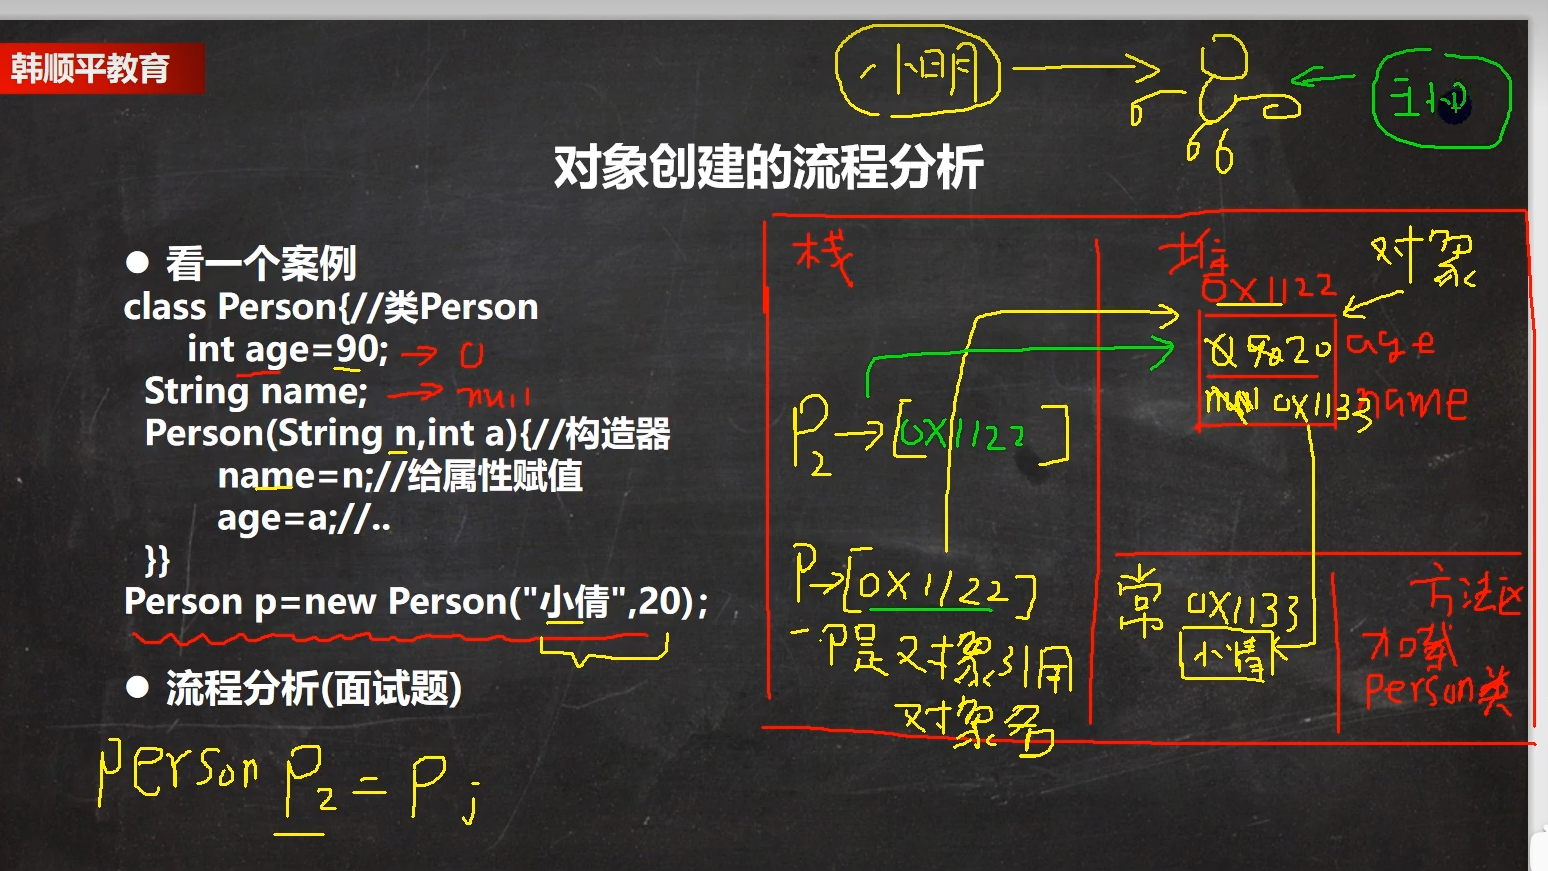 韩顺平教育
小明
对象创建的流程分析
● 看一个案例
class Person{//类Person
int age=90; → 0
String name; → null
Person(String n,int a){//构造器
name=n;//给属性赋值
age=a;//..
}}
Person p=new Person("小倩",20);
● 流程分析(面试题)
Person P2 = P;
栈
P2→[0X1122]
P→[0X1122]
P是对象引用
对象名
堆
对象
0X1122
20 age
null 0X1133 name
常
0X1133
小倩
方法区
加载
Person类